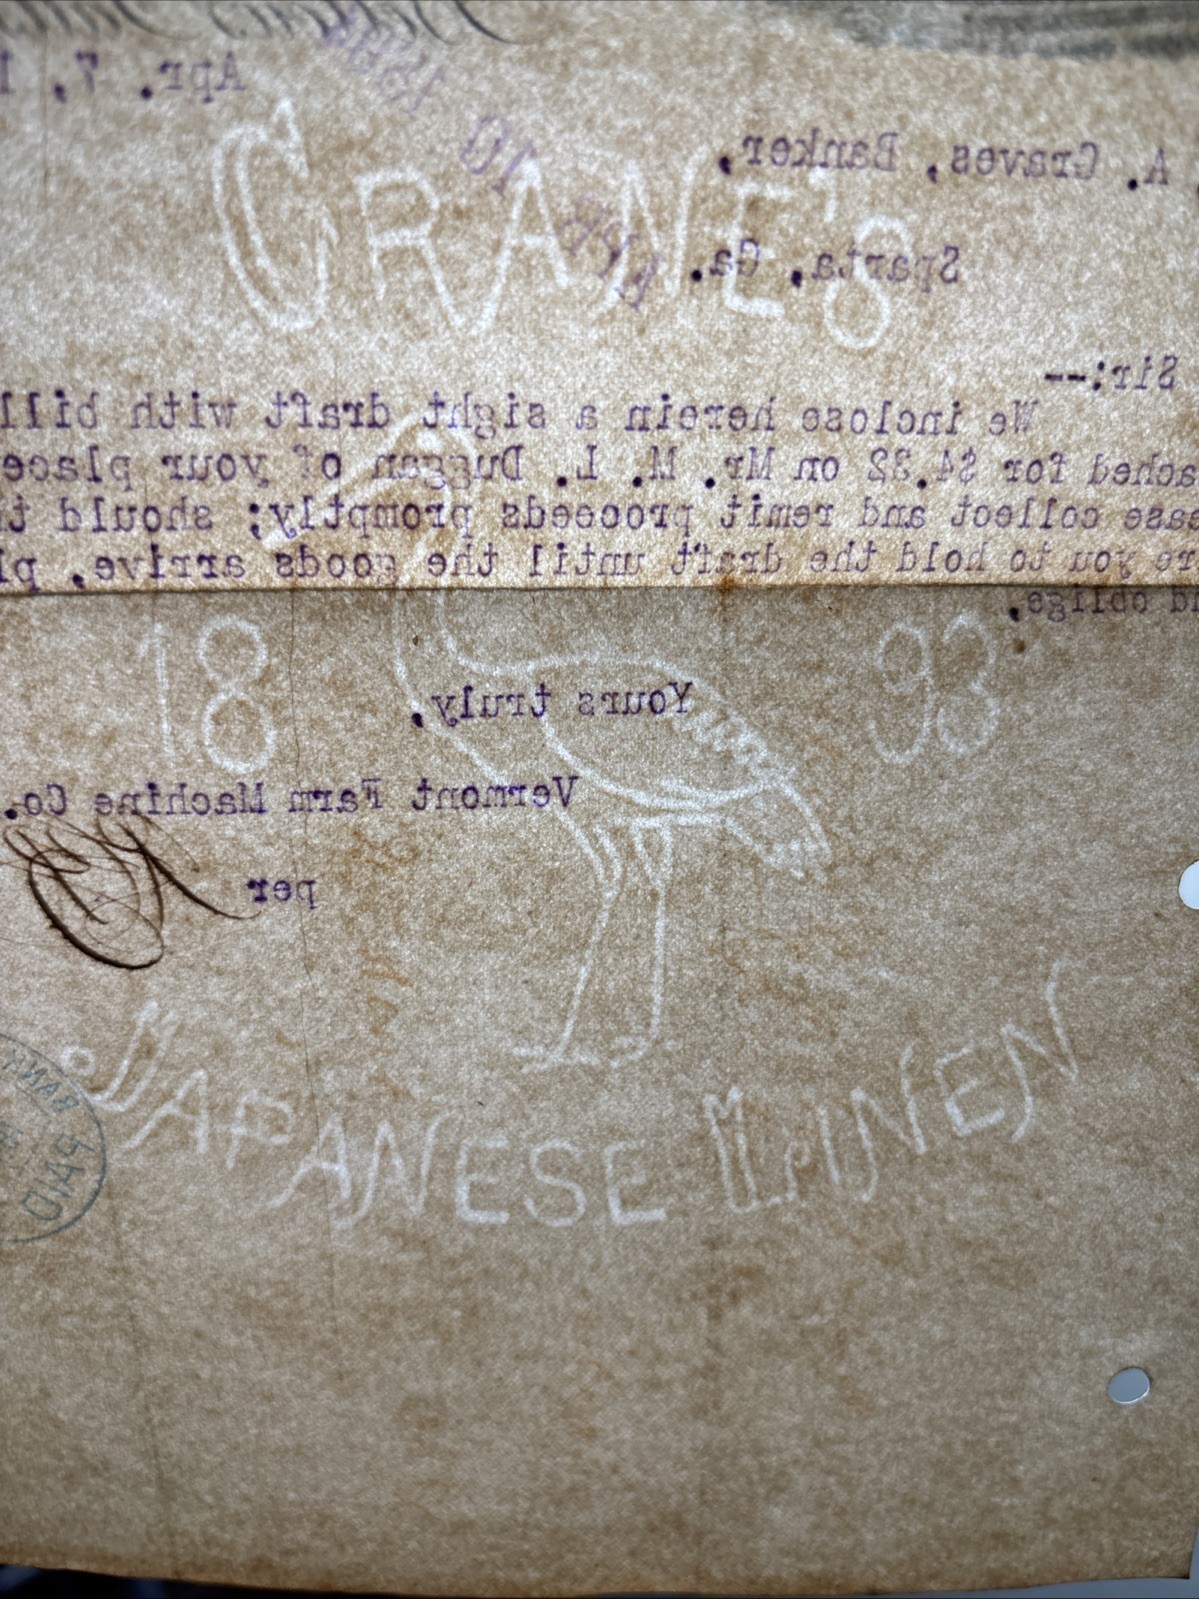 Apr. 7, 1
APR 10 189
CRANE'S
A. Graves, Banker,
Sparta, Ga.
Sir:--
We inclose herein a sight draft with bill
ached for $4.32 on Mr. M. L. Duggan of your place
ease collect and remit proceeds promptly; should t
re you to hold the draft until the goods arrive, pl
d oblige,
1893
Yours truly,
Vermont Farm Machine Co.
per
JAPANESE LINEN
BANK
PAID